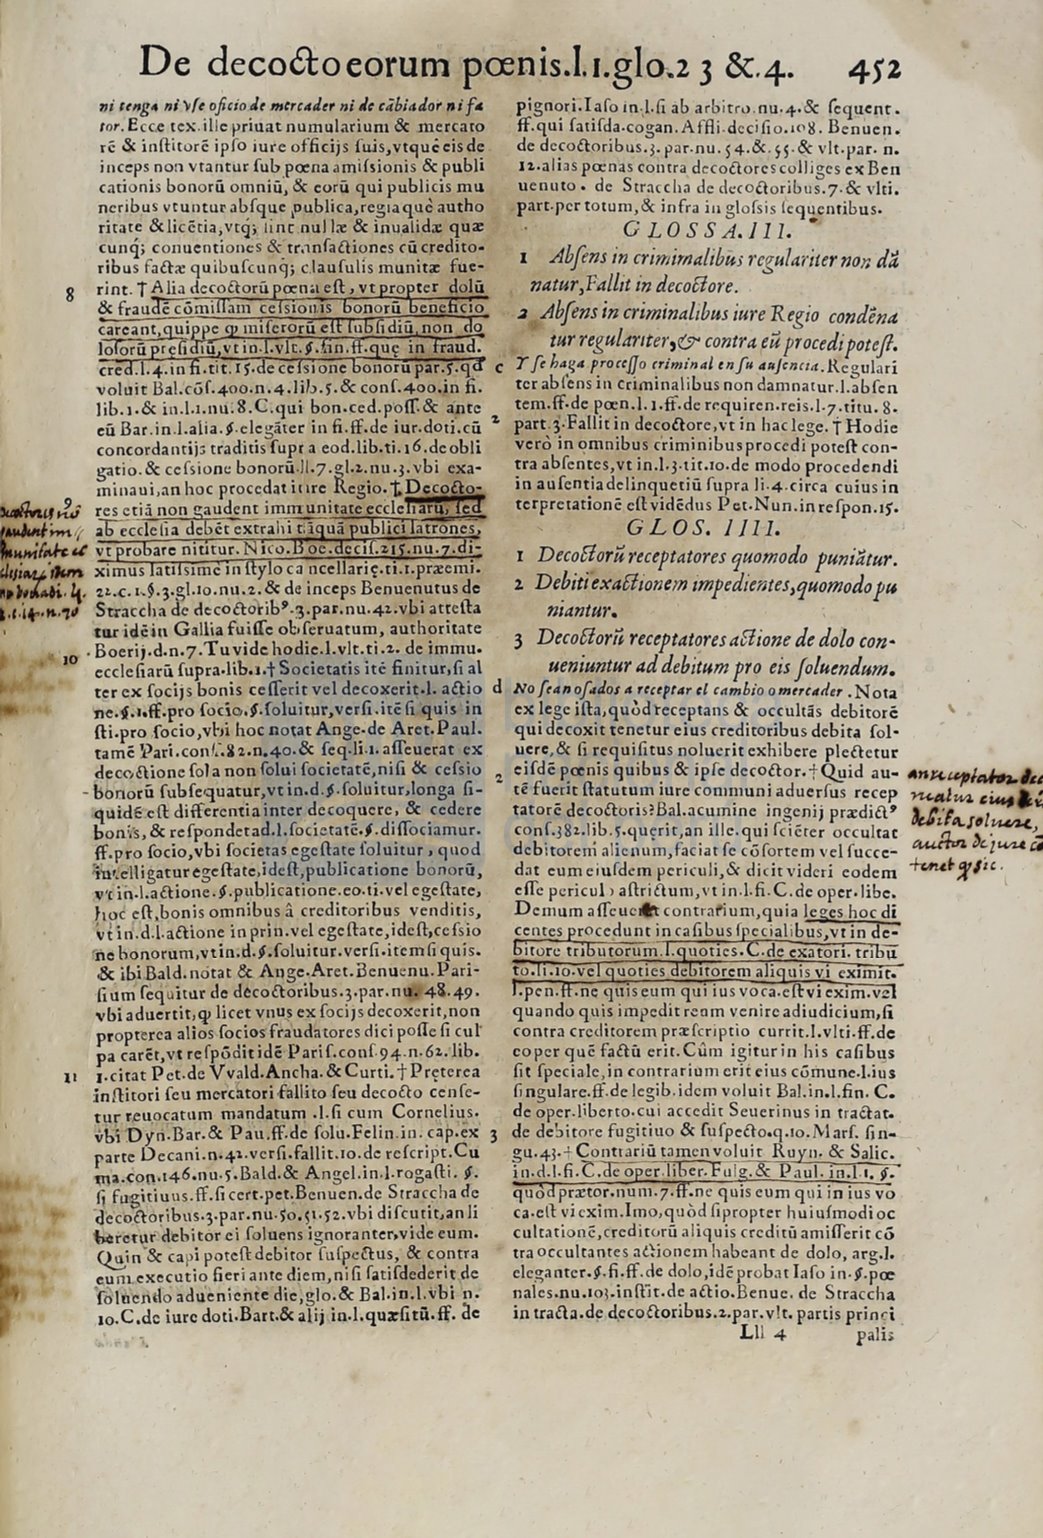 De decocto eorum pœnis.l.1.glo.2 3 &.4. 452
ni tenga ni vſe oficio de mercader ni de cãbiador ni fa
tor. Ecce tex. ille priuat numularium & mercato
rē & inſtitorē ipſo iure officijs ſuis, vtque eis de
inceps non vtantur ſub pœna amiſsionis & publi
cationis bonorū omniū, & eorū qui publicis mu
neribus vtuntur abſque publica, regiaque autho
ritate & licētia, vtq́; ſint nullæ & inualidæ quæ
cunq́; conuentiones & tranſactiones cū credito-
ribus factæ quibuſcunq́; clauſulis munitæ fue-
8 rint. † Alia decoctorū pœna eſt, vt propter dolū
& fraudē cōmiſſam ceſsionis bonorū beneficio
careant, quippe ꝙ miſerorū eſt ſubſidiū, non do
loſorū pręſidiū, vt in.l.vlt.§.fin.ff.quę in fraud.
cred.l.4.in fi.tit.15.de ceſsione bonorū par.5.qđ
voluit Bal.cōſ.400.n.4.lib.5.& conſ.400.in fi.
lib.1.& in.l.1.nu.8.C.qui bon.ced.poſſ.& ante
eū Bar.in.l.alia.§.elegāter in fi.ff.de iur.doti.cū
concordantijs traditis ſupra eod.lib.ti.16.de obli
gatio.& ceſsione bonorū.ll.7.gl.2.nu.3.vbi exa-
minaui, an hoc procedat iure Regio. † Decocto-
9 res etiā non gaudent immunitate eccleſiarū, ſed
ab eccleſia debēt extrahi tāquā publici latrones,
vt probare nititur. Nico. Boe. deciſ.215.nu.7.di-
ximus latiſsime in ſtylo cancellarię.ti.1.præemi.
22.c.1.§.3.gl.10.nu.2.& de inceps Benuenutus de
Straccha de decoctoribꝰ.3.par.nu.42.vbi atteſta
tur idē in Gallia fuiſſe obſeruatum, authoritate
Boerij.d.n.7. Tu vide hodie.l.vlt.ti.2. de immu.
10 eccleſiarū ſupra.lib.1.† Societatis itē finitur, ſi al
ter ex ſocijs bonis ceſſerit vel decoxerit.l. actio
ne.§.1.ff.pro ſocio.§.ſoluitur, verſi.itē ſi quis in
ſti.pro ſocio, vbi hoc notat Ange.de Aret. Paul.
tamē Pari.conſ.82.n.40.& ſeq.li.1. aſſeuerat ex
decoctione ſola non ſolui ſocietatē, niſi & ceſsio
bonorū ſubſequatur, vt in.d.§.ſoluitur, longa ſi-
quidē eſt differentia inter decoquere, & cedere
bonis, & reſpondet ad.l.ſocietatē.§.diſſociamur.
ff.pro ſocio, vbi ſocietas egeſtate ſoluitur, quod
intelligatur egeſtate, ideſt, publicatione bonorū,
vt in.l.actione.§.publicatione.eo.ti.vel egeſtate,
hoc eſt, bonis omnibus â creditoribus venditis,
vt in.d.l.actione in prin.vel egeſtate, ideſt, ceſsio
ne bonorum, vt in.d.§.ſoluitur.verſi.item ſi quis.
& ibi Bald. notat & Ange. Aret. Benuenu. Pari-
ſium ſequitur de decoctoribus.3.par.nu. 48.49.
vbi aduertit, ꝙ licet vnus ex ſocijs decoxerit, non
propterea alios ſocios fraudatores dici poſſe ſi cul
pa carēt, vt reſpōdit idē Pariſ.conſ.94.n.62.lib.
11 1.citat Pet. de Vvald. Ancha. & Curti. † Pręterea
inſtitori ſeu mercatori fallito ſeu decocto cenſe-
tur reuocatum mandatum .l.ſi cum Cornelius.
vbi Dyn. Bar. & Pau. ff.de ſolu. Felin. in. cap. ex
parte Decani.n.42.verſi.fallit.10.de reſcript. Cu
ma.con.146.nu.5. Bald. & Angel.in.l.rogaſti. §.
ſi fugitiuus.ff.ſi cert.pet. Benuen. de Straccha de
decoctoribus.3.par.nu.50.51.52.vbi diſcutit, an li
beretur debitor ei ſoluens ignoranter, vide eum.
Quin & capi poteſt debitor ſuſpectus, & contra
eum executio fieri ante diem, niſi ſatiſdederit de
ſoluendo adueniente die, glo.& Bal.in.l.vbi n.
10.C.de iure doti. Bart. & alij in.l.quæſitū.ff. de
pignori. Iaſo in.l.ſi ab arbitro.nu.4.& ſequent.
ff.qui ſatiſda.cogan. Affli.deciſio.108. Benuen.
de decoctoribus.3. par.nu.54.&.55.& vlt.par. n.
12.alias pœnas contra decoctores colliges ex Ben
uenuto . de Straccha de decoctoribus.7.& vlti.
part.per totum, & infra in gloſsis ſequentibus.
GLOSSA.III.
1 Abſens in crimimalibus regulariter non dā
natur, Fallit in decoctore.
2 Abſens in criminalibus iure Regio condēna
tur regulariter, & contra eū procedi poteſt.
c Y ſe haga proceſſo criminal en ſu auſencia. Regulari
ter abſens in criminalibus non damnatur.l.abſen
tem.ff.de pœn.l.1.ff.de requiren.reis.l.7.titu.8.
2 part.3. Fallit in decoctore, vt in hac lege. † Hodie
verò in omnibus criminibus procedi poteſt con-
tra abſentes, vt in.l.3.tit.10.de modo procedendi
in auſentia delinquetiū ſupra li.4.circa cuius in
terpretationē eſt vidēdus Pet. Nun. in reſpon.15.
GLOS. IIII.
1 Decoctorū receptatores quomodo puniātur.
2 Debiti exactionem impedientes, quomodo pu
niantur.
3 Decoctorū receptatores actione de dolo con-
ueniuntur ad debitum pro eis ſoluendum.
d No ſean oſados a receptar el cambio o mercader . Nota
ex lege iſta, quòd receptans & occultās debitorē
qui decoxit tenetur eius creditoribus debita ſol-
uere, & ſi requiſitus noluerit exhibere plectetur
2 eiſdē pœnis quibus & ipſe decoctor. † Quid au-
tē fuerit ſtatutum iure communi aduerſus recep
tatorē decoctoris? Bal. acumine ingenij prædictꝰ
conſ.382.lib.5.querit, an ille.qui ſciēter occultat
debitorem alienum, faciat ſe cōſortem vel ſucce-
dat eum eiuſdem periculi, & dicit videri eodem
eſſe periculo aſtrictum, vt in.l.fi.C.de oper.libe.
Demum aſſeuerat contrarium, quia leges hoc di
centes procedunt in caſibus ſpecialibus, vt in de-
bitore tributorum.l.quoties.C.de exatori. tribu
to.li.10.vel quoties debitorem aliquis vi eximit.
l.pen.ff.ne quis eum qui ius voca.eſt vi exim.vel
quando quis impedit reum venire ad iudicium, ſi
contra creditorem præſcriptio currit.l.vlti.ff.de
eo per quē factū erit. Cûm igitur in his caſibus
ſit ſpeciale, in contrarium erit eius cōmune.l.ius
ſingulare.ff.de legib.idem voluit Bal.in.l.fin. C.
de oper.liberto.cui accedit Seuerinus in tractat.
3 de debitore fugitiuo & ſuſpecto.q.10. Marſ. ſin-
gu.43.† Contrariū tamen voluit Ruyn. & Salic.
in.d.l.fi.C.de oper.liber. Fulg. & Paul. in.l.1. §.
quòd prætor.num.7.ff.ne quis eum qui in ius vo
ca.eſt vi exim. Imo, quòd ſi propter huiuſmodi oc
cultationē, creditorū aliquis creditū amiſſerit cō
tra occultantes actionem habeant de dolo, arg.l.
eleganter.§.fi.ff.de dolo, idē probat Iaſo in.§.pœ
nales.nu.103.inſtit.de actio. Benue. de Straccha
in tracta.de decoctoribus.2.par.vlt. partis princi
Lll 4 palis
an receptator dec
debita soluere,
auctor de jure co